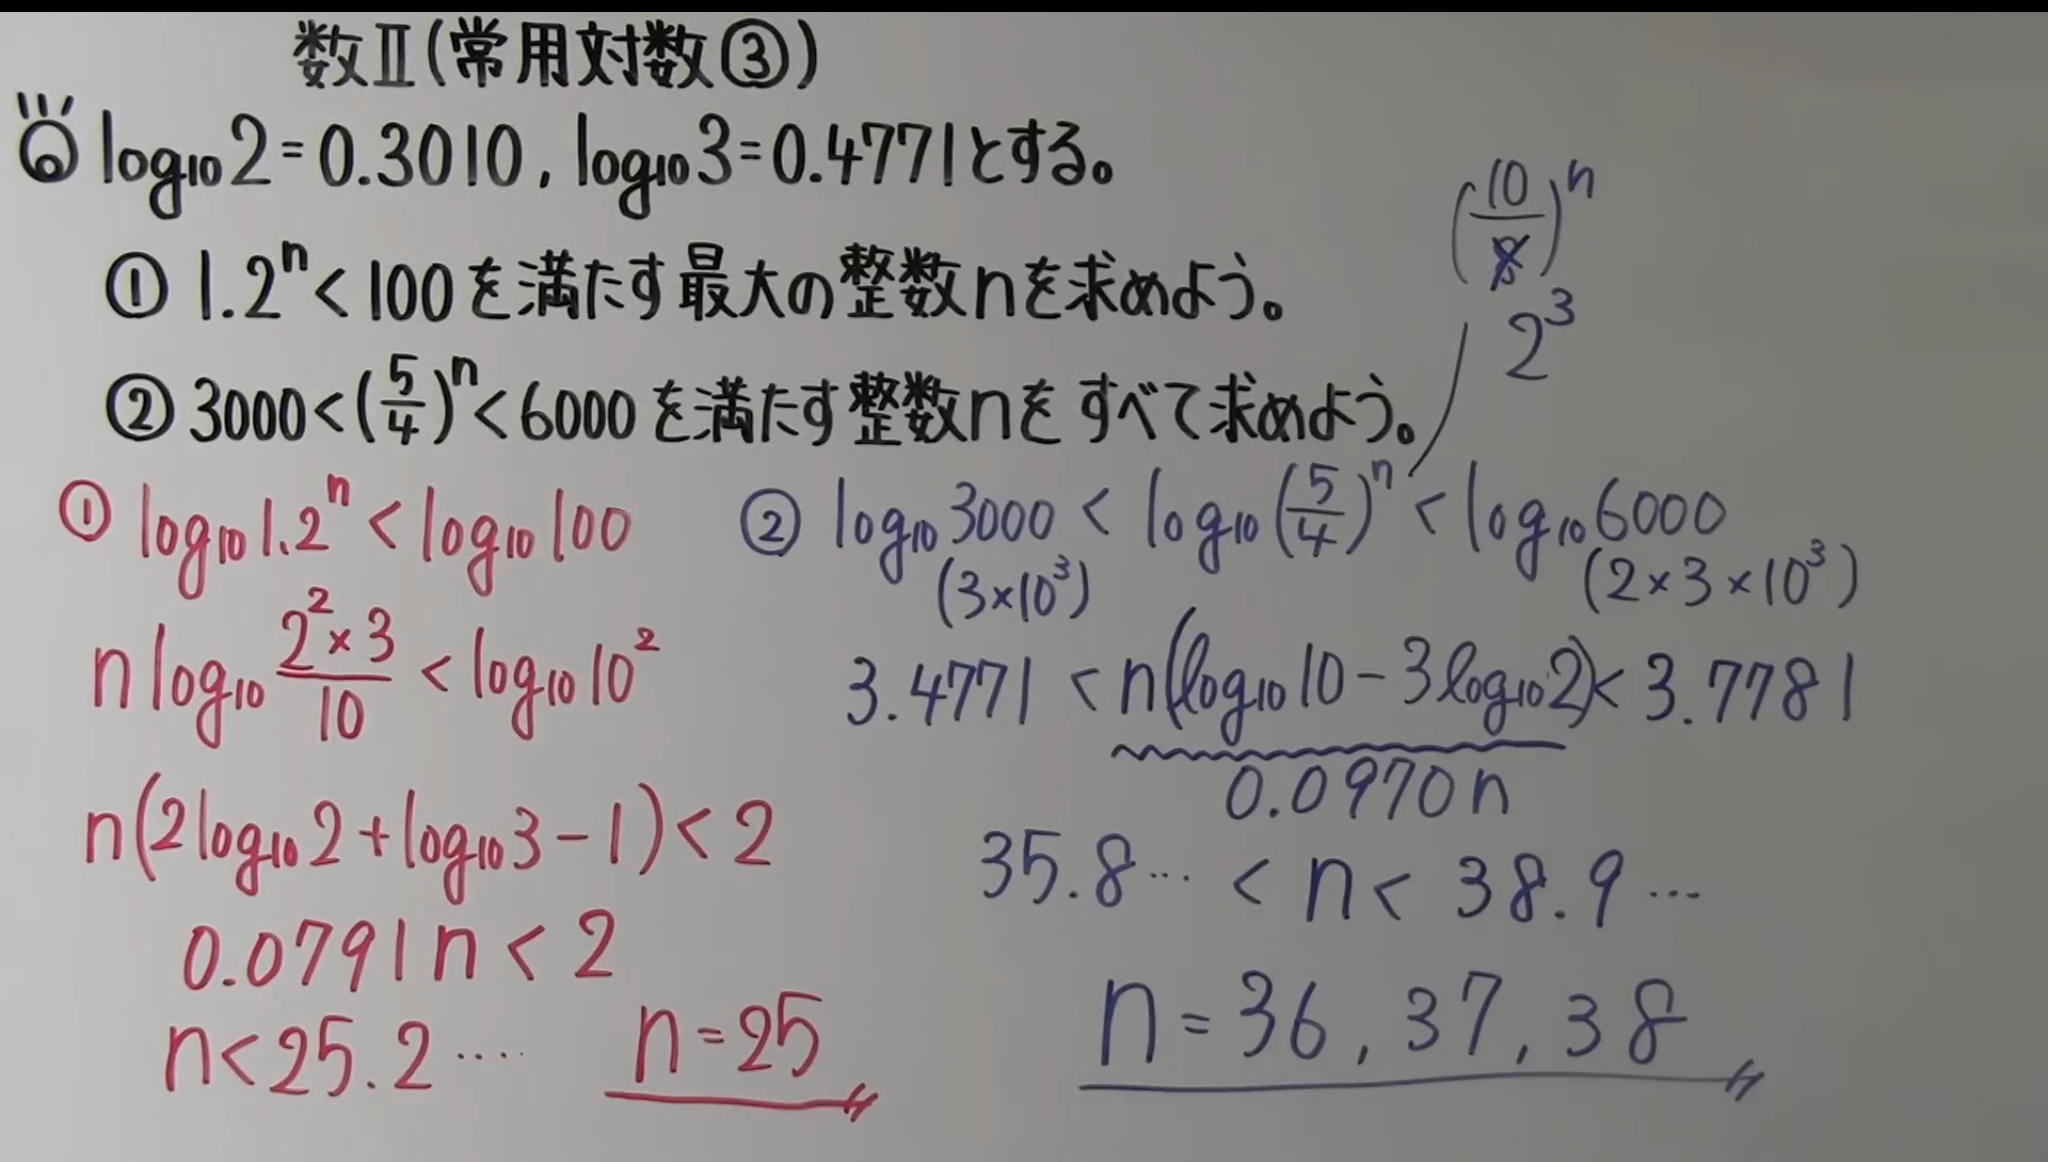 数Ⅱ(常用対数③)
log₁₀2=0.3010, log₁₀3=0.4771とする。
① 1.2ⁿ<100を満たす最大の整数nを求めよう。
② 3000<(5/4)ⁿ<6000を満たす整数nをすべて求めよう。
① log₁₀1.2ⁿ<log₁₀100
n log₁₀ (2²×3)/10 < log₁₀10²
n(2log₁₀2+log₁₀3-1)<2
0.0791n<2
n<25.2‥‥
n=25
② log₁₀3000<log₁₀(5/4)ⁿ<log₁₀6000
(3×10³) (2×3×10³)
3.4771<n(log₁₀10-3log₁₀2)<3.7781
0.0970n
35.8…<n<38.9…
n=36,37,38
(10/8)ⁿ
2³